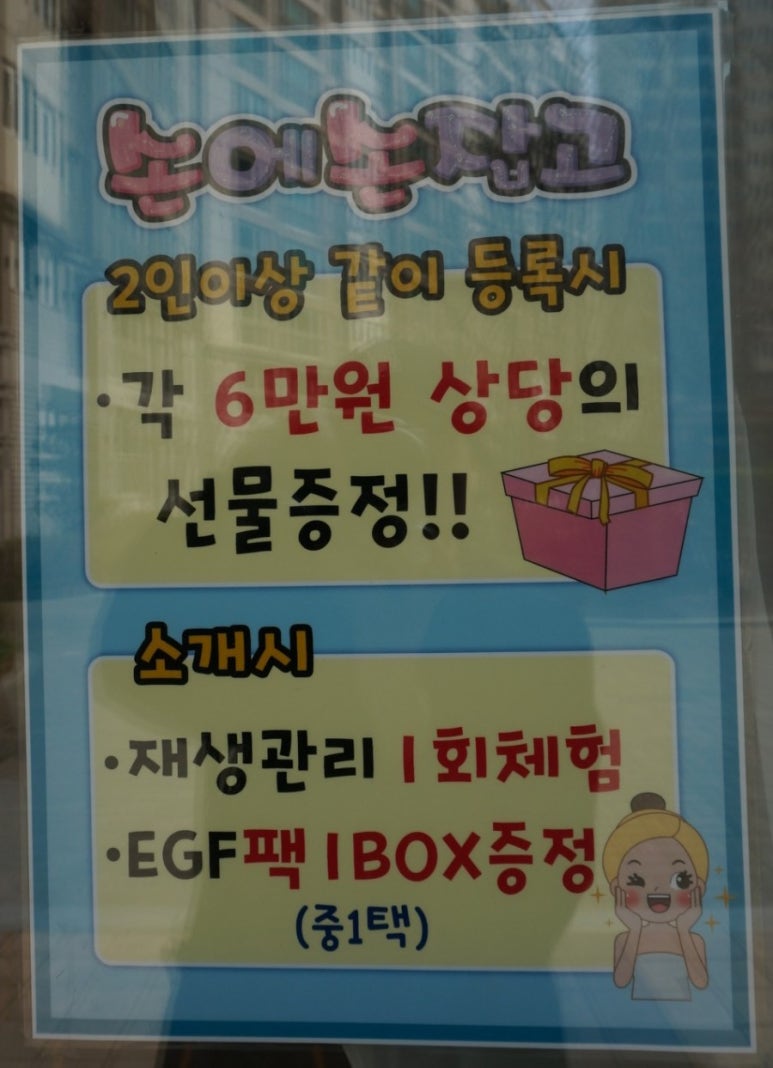 손에손잡고
2인이상 같이 등록시
·각 6만원 상당의
선물증정!!
소개시
·재생관리 1회체험
·EGF팩 1BOX증정
(중1택)